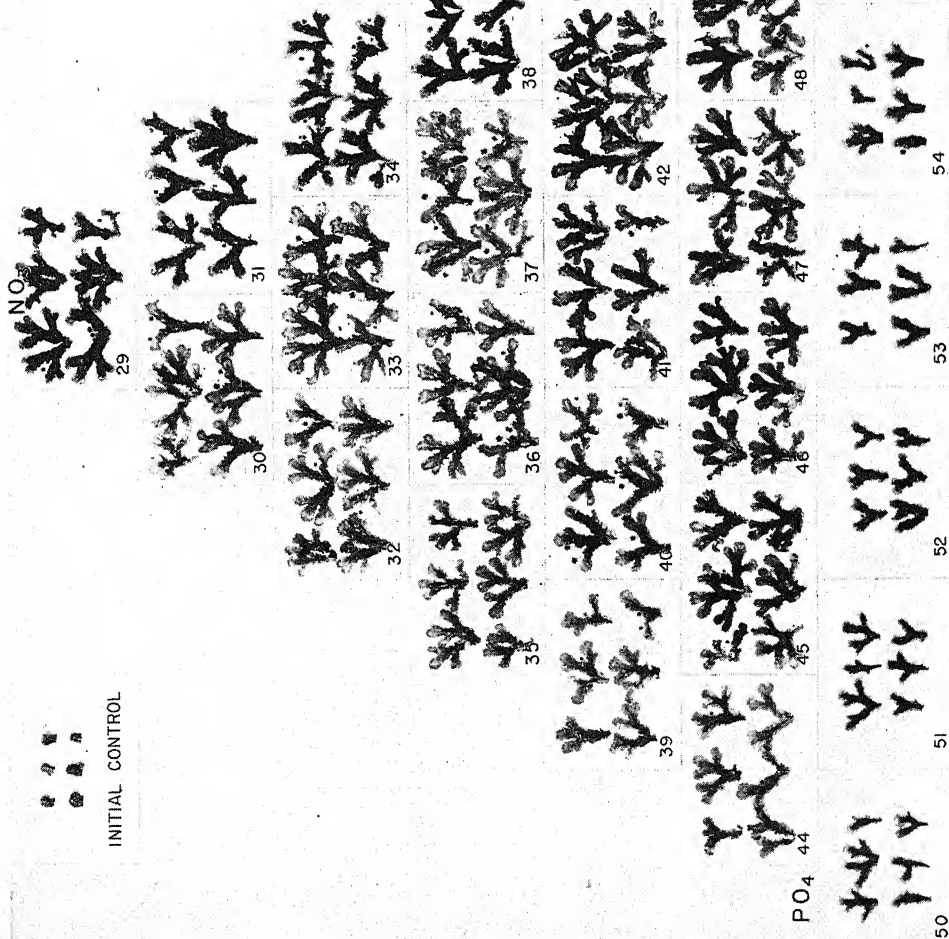 NO
INITIAL CONTROL
29
30 31
32 33 34
35 36 37 38
39 40 41 42
PO4 44 45 46 47 48
50 51 52 53 54